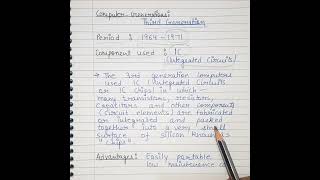 Computer Generations:
Third Generation
Period : 1964-1971
Component used : IC
(Integrated Circuits)
→ The 3rd generation computers
used IC (Integrated Circuits
or IC chips) in which -
many transistors, resistors,
Capacitors and other components
(circuit elements) are fabricated
or integrated and packed
together into a very small
surface of silicon known as
"Chips"
Advantages: Easily portable
low maintenance